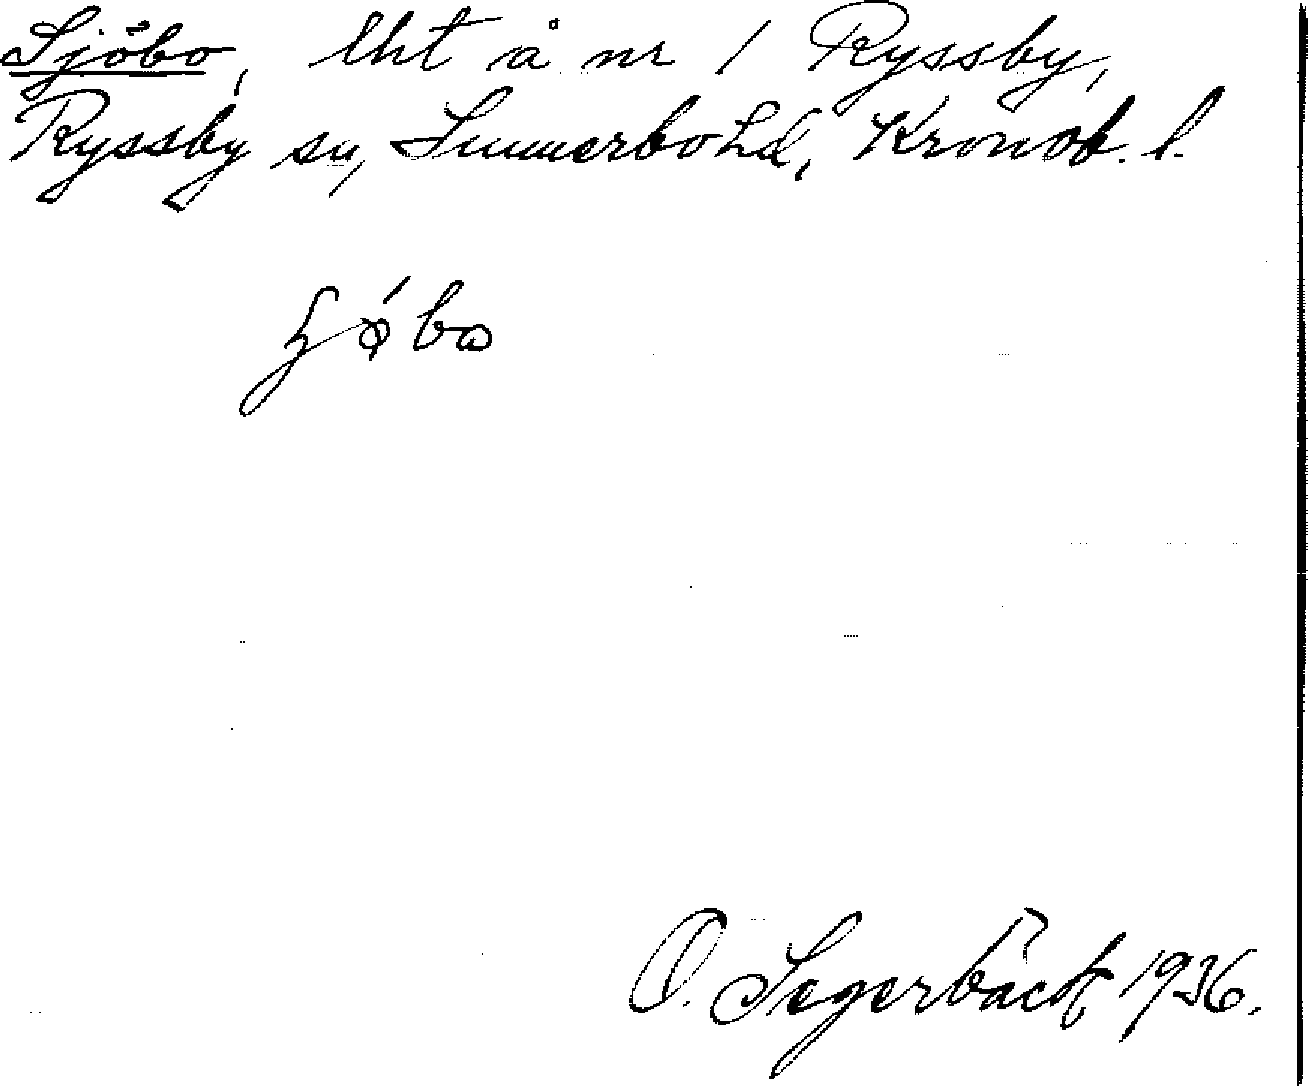 Sjöbo, lht å nr 1 Ryssby,
Ryssby sn, Sunnerbo hd, Kronob. l.
O. Segerbäck 1936.